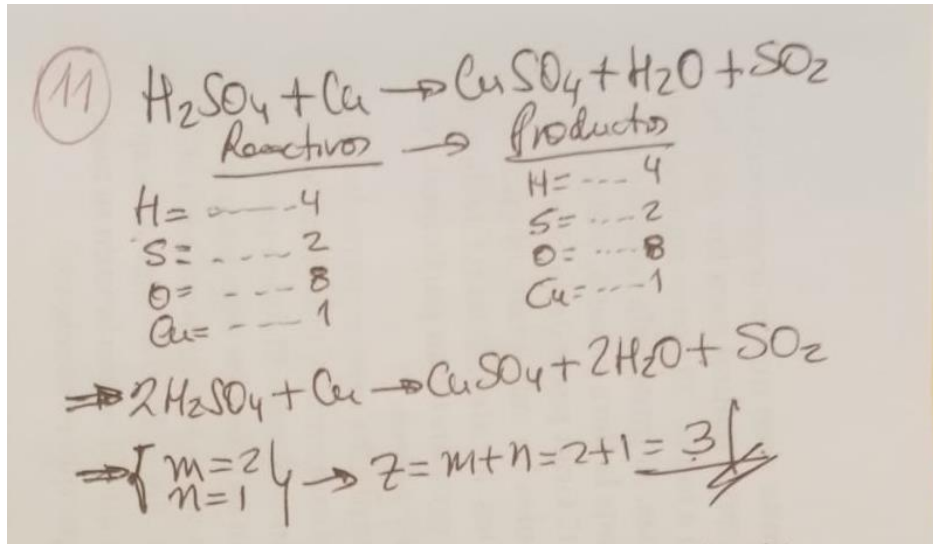 11 H2SO4 + Cu → CuSO4 + H2O + SO2
Reactivos → Productos
H= ------4 H= ---- 4
S= ---- 2 S= ----2
O= ---- 8 O= ----8
Cu= ---- 1 Cu= ----1
⇒ 2H2SO4 + Cu → CuSO4 + 2H2O + SO2
⇒ { m=2 n=1 } → z = m+n = 2+1 = 3